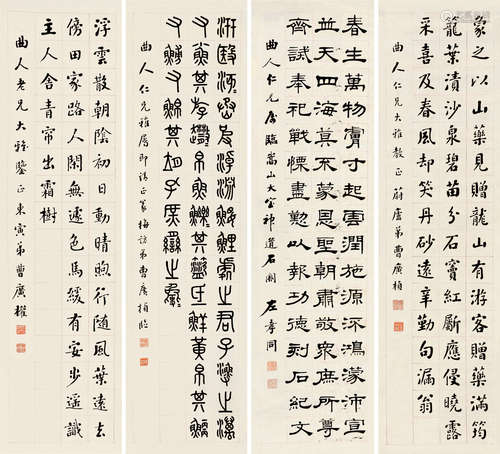 象之以人見贈龍山有游客贈藥滿筠
籠葉漬沙泉碧苗分石竇紅斸應侵曉露
采喜及春風却笑丹砂遠辛勤句漏翁
曲人仁兄大雅教正 蔚廬弟曹廣楨
春生萬物膚寸起雲潤施源流鴻濛沛宣
並天四海莫不蒙恩聖朝肅敬眾庶所尊
齊試奉祀戰慄盡懃以報功德刻石紀文
曲人仁兄屬臨嵩山大室神道石闕 左孝同
汧殹沔沔烝皮淖淵鰋鯉處之君子漁之澫
又其斿帛魚其氐鮮黃帛其
又又其孔庶臠之
曲人仁兄雅屬即請正篆 梅訪弟曹廣楨臨
浮雲散朝陰初日動晴煦行隨風葉遠去
傍田家路人閑無遽色馬緩有安步遥識
主人舍青帘出霜樹
曲人老兄大雅鑒正 東寅弟曹廣權